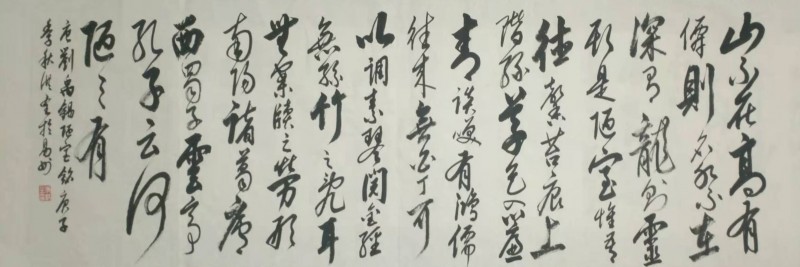 山不在高有
僊則名水不在
深有龍則靈
斯是陋室惟吾
德馨苔痕上
階綠草色入簾
青談笑有鴻儒
往來無白丁可
以調素琴閱金經
無絲竹之亂耳
無案牘之勞形
南陽諸葛廬
西蜀子雲亭
孔子云何
陋之有
唐劉禹錫陋室銘庚子
季秋於易州